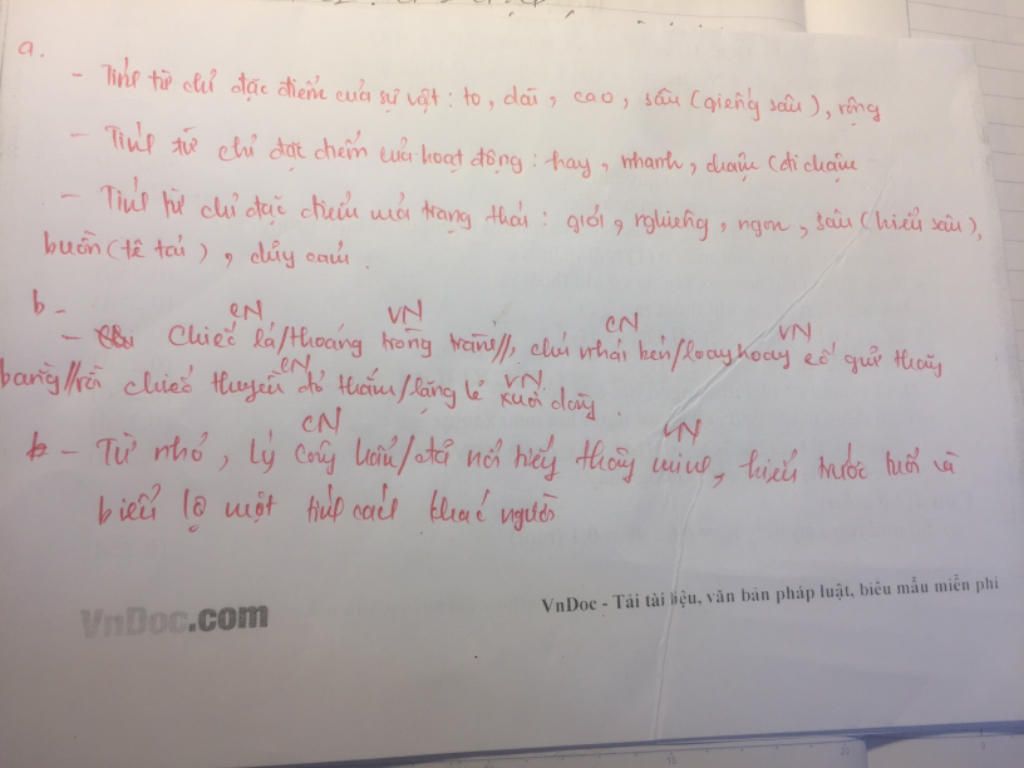 a.
- Tính từ chỉ đặc điểm của sự vật: to, dài, cao, sâu (giếng sâu), rộng
- Tính từ chỉ đặc điểm của hoạt động: hay, nhanh, chậm (đi chậm
- Tính từ chỉ đặc điểm của trạng thái: giỏi, nghiêng, ngon, sâu (hiểu sâu),
buồn (tê tái), chảy.
b -
CN VN CN VN
- Chiếc lá/thoáng tròng trành//, chú nhái bén/loay hoay cố giữ thăng
CN VN
bằng//rồi chiếc thuyền đỏ thắm/lặng lẽ xuôi dòng.
CN VN
b - Từ nhỏ, Lý Công Uẩn/đã nổi tiếng thông minh, hiểu trước tuổi và
biểu lộ một tính cách khác người
VnDoc.com
VnDoc - Tải tài liệu, văn bản pháp luật, biểu mẫu miễn phí